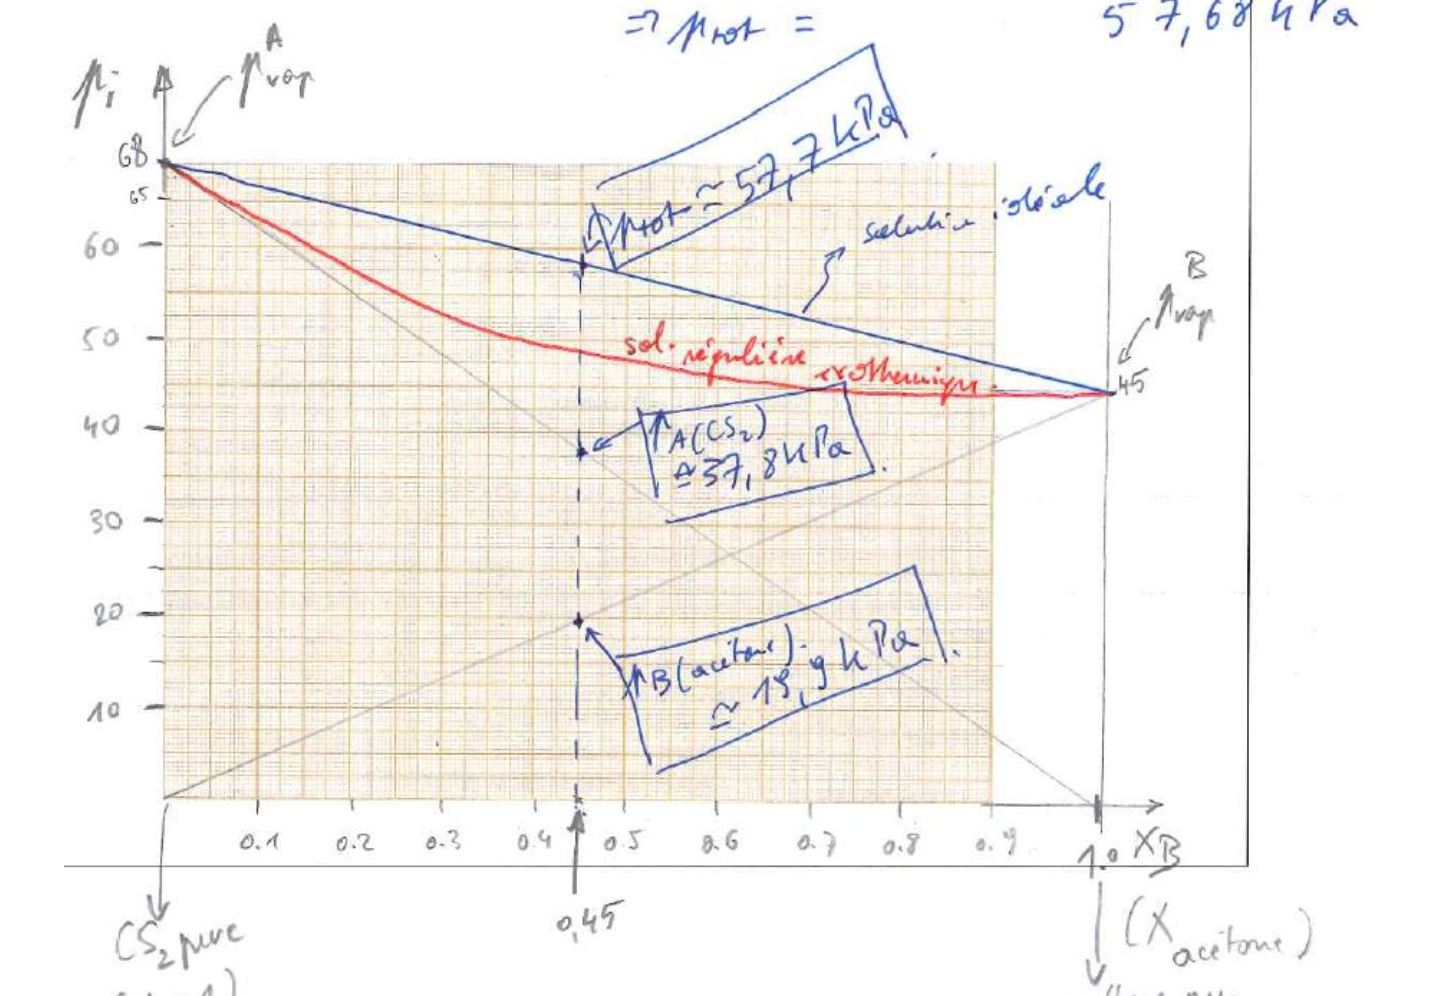 ⇒ ptot = 57,68 kPa
pi
p A vap
68
65
60
50
40
30
20
10
ptot ≃ 57,7 kPa
solution idéale
p B vap
45
sol. régulière exothermique.
pA(CS2)
≃ 37,8 kPa.
pB(acétone).
≃ 19,9 kPa.
0.1 0.2 0.3 0.4 0.5 0.6 0.7 0.8 0.9 1.0 XB
0,45
CS2 pure
(Xacétone)